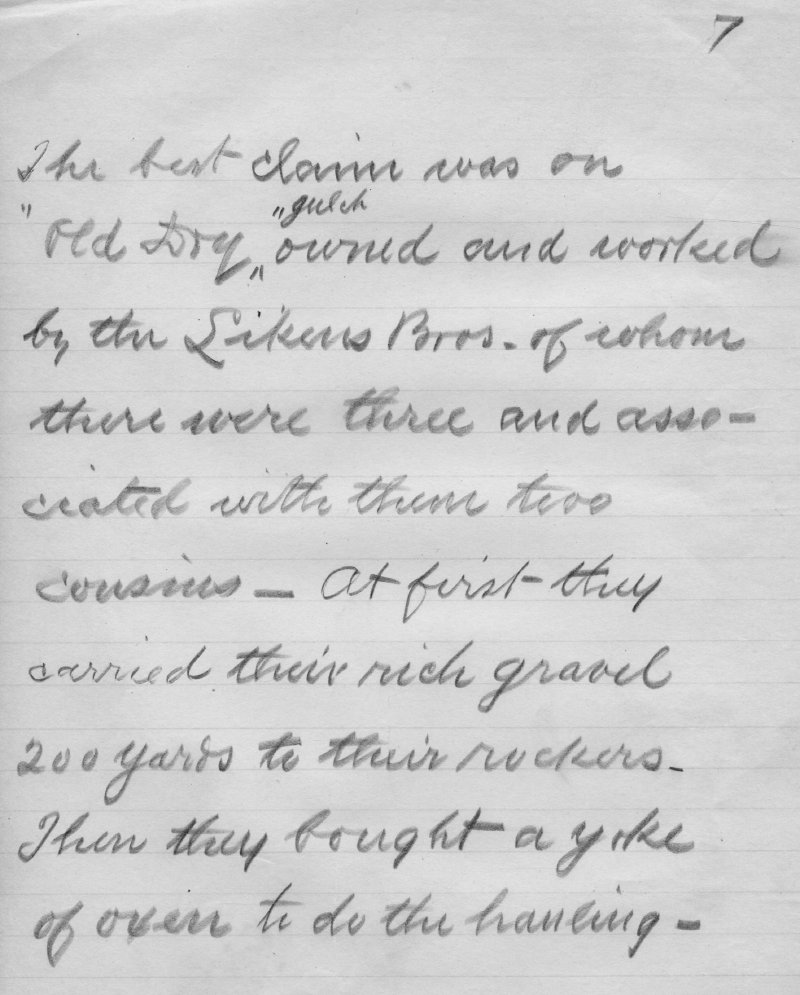 7
The best claim was on
"Old Dry„ "gulch owned and worked
by the Likens Bros. of whom
there were three and asso-
ciated with them two
cousins — At first they
carried their rich gravel
200 yards to their rockers.
Then they bought a yoke
of oxen to do the hauling —